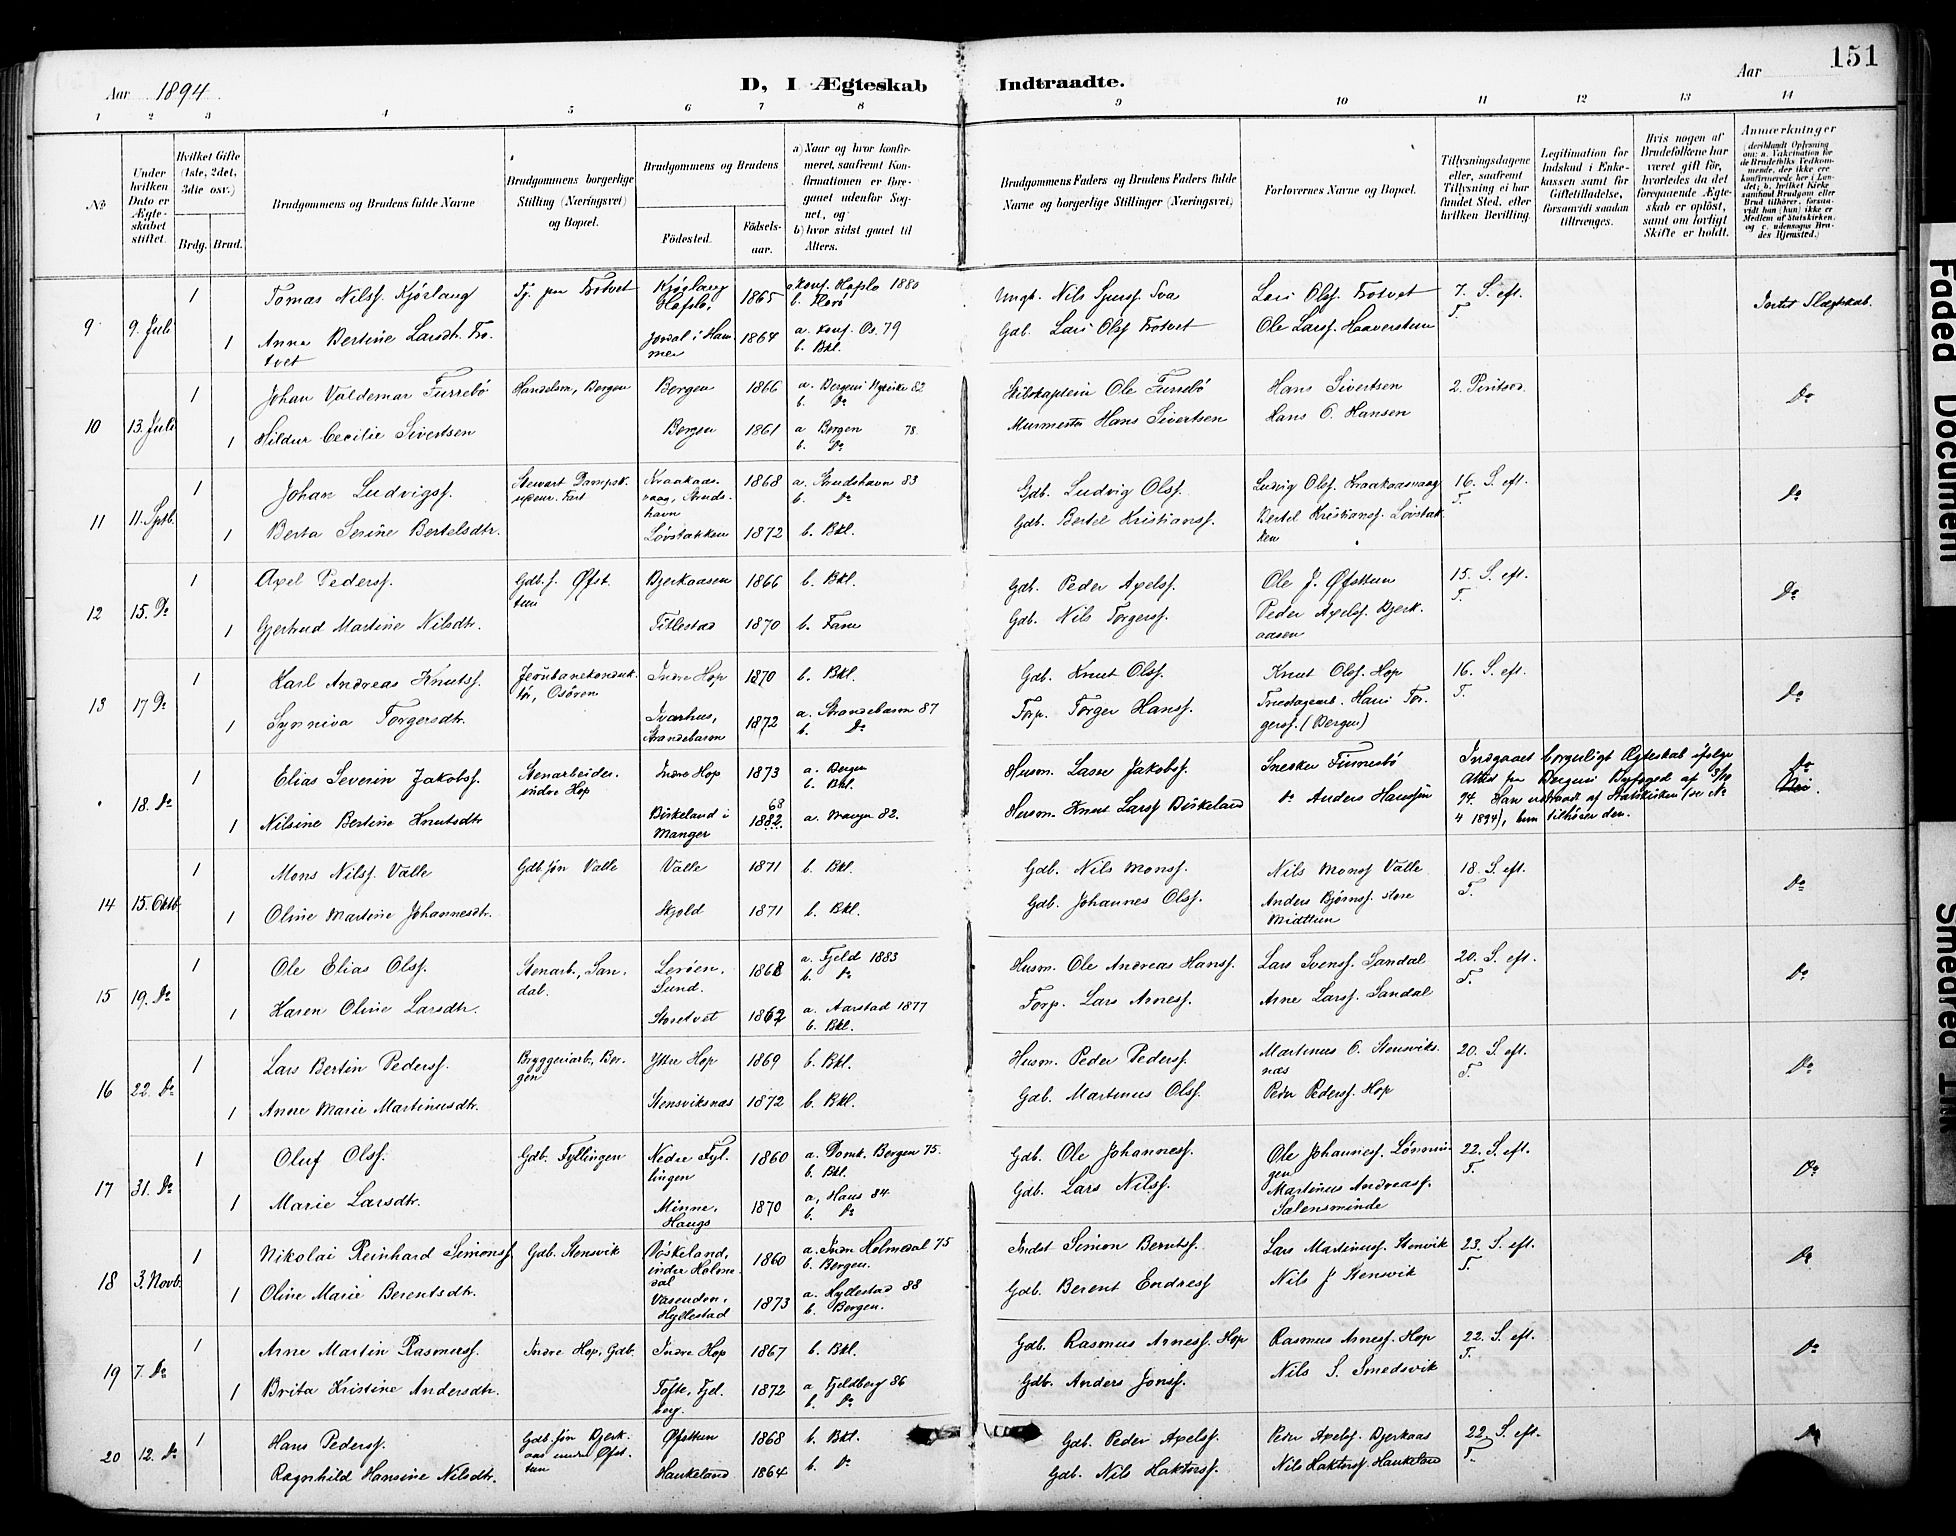 151
Aar 1894
D, I Ægteskab Indtraadte.
Aar
1 2 3 4 5 6 7 8 9 10 11 12 13 14
No
Under hvilken Dato er Ægteskabet stiftet.
Hvilket Gifte (1ste, 2det, 3die osv.)
Brdg. Brud.
Brudgommens og Brudens fulde Navne
Brudgommens borgerlige Stilling (Næringsvei) og Bopæl.
Brudgommens og Brudens
Fødested.
Fødselsaar.
a) Naar og hvor konfirmeret, saafremt Konfirmationen er foregaaet udenfor Sognet, og
b) hvor sidst gaaet til Alters.
Brudgommens Faders og Brudens Faders fulde Navne og borgerlige Stillinger (Næringsvei)
Forlovernes Navne og Bopæl.
Tillysningsdagene eller, saafremt Tillysning ei har fundet Sted, efter hvilken Bevilling.
Legitimation for Indskud i Enkekassen samt for Giftetilladelse, forsaavidt saadan tiltrænges.
Hvis nogen af Brudefolkene har været gift før, hvorledes da det foregaaende Ægteskab er opløst, samt om lovligt Skifte er holdt.
Anmærkninger
(deriblandt Oplysning om: a. Vakcination for de Brudefolks Vedkommende, der ikke ere konfirmerede her i Landet; b. hvilket Kirkesamfund Brudgom eller Brud tilhører, forsaavidt han (hun) ikke er Medlem af Statskirken, og c. udensogns Brudes Hjemsted.)
9 9. Juli 1 Tomas Nilsf. Kjørlaug Tj. paa Totvet Kjørlaug Hafslo, 1865 a. konf. Hafslo 1880 b. Ungk. Nils Lars Olsf. 7. S. eft. T. Intet Slægtskab.
1 Anna Bertine Larsdtr. Jordal i Hammer 1864 a. konf. Os. 79 b. Bkl. Gdb. Lars Olsf. Ole Larsf.
10 13. Juli 1 Johan Valdemar Furrebø Handelsm, Bergen Bergen 1866 a. Bergens Nykirke 82 b. Do Skibskaptein Ole Furrebø Hans Sivertsen 2. Do
1 Hildur Cecilie Sivertsen Bergen 1861 a Bergen 78. b. Do Murmester Hans Sivertsen Hans O. Hansen
11 11. Sptb. 1 Johan Ludvigsf. Stewart Kraakaasvaag, 1868 a. 83 b. Do Gdb. Ludvig Olsf. Ludvig Olsf. Kraakaasvaag 16. S. eft. T. Do
1 Berta Serine Bertelsdtr. Løvstakken 1872 b. Bkl. Gdb. Bertel Kristiansf. Bertel Kristiansf. Løvstakken
12 15. Do 1 Axel Pedersf. Gdb. f. Øfsttun Bjerkaasen 1866 b. Bkl. Gdb. Peder Axelsf. Ole J. Øfsttun 15. S. eft. T. Do
1 Gjertrud Martine Nilsdtr. Titlestad 1870 b. Fane Gdb. Nils Torgersf. Peder Axelsf. Bjerkaasen
13 17 Do 1 Karl Andreas Knutsf. Jernbanekonduktør, Osøren Indre Hop 1870 b. Bkl. Gdb. Knut Olsf. Knut Olsf. Hop 16. S. eft. T. Do
1 Synniva Torgersdtr. Ivarhus, Strandebarm 1872 a. Strandebarm 87 b. Do Forp. Torger Hansf. Hans Torgersf. (Bergen)
18. Do 1 Elias Severin Jakobsf. Stenarbeider. indre Hop Indre Hop 1873 a. Bergen b. Bkl. Husm. Lasse Jakobsf. Snekker Finnesbø Indgaaet borgerligt Ægteskab ifølge Attest fra Bergens Byfoged af 3/10 94. Han udtraadt af Statskirken (se No 4 1894), hun tilhører den. Do
1 Nilsine Bertine Knutsdtr Birkeland i Manger 1882 68 a. Manger 82. Husm. Knut Larsf Birkeland Do Anders Hansson
14 15. Oktb 1 Mons Nilsf. Valle Gdb. søn Valle Valle 1871 b. Bkl. Gdb. Nils Monsf. Nils Monsf Valle 18. S. eft. T. Do
1 Oline Martine Johannesdtr. Skjold 1871 b. Bkl. Gdb. Johannes Olsf. Anders Bjørnsf. store Midttun
15 19. Do 1 Ole Elias Olsf. Stenarb., Sandal. Lerøen, Sund. 1868 a. Fjeld 1883 b. Do Husm. Ole Andreas Hansf. Lars Svensf. Sandal 20. S. eft. T. Do
1 Karen Oline Larsdtr. Storetvet 1862 a. Aarstad 1877 b. Bkl. Forp. Lars Arnesf. Arne Larsf. Sandal
16 22. Do 1 Lars Bertin Pedersf. Bryggeriarb., Bergen Ytre Hop 1869 b. Bkl. Husm. Peder Pedersf. Martinus O. Stensviksnæs 20. S. eft. T. Do
1 Anne Marie Martinusdtr. Stensviksnæs 1872 b. Bkl. Gdb. Martinus Olsf. Peder Pedersf. Hop
17 31. Do 1 Oluf Olsf. Gdb. Fyllingen Nedre Fyllingen 1860 a. Domk. Bergen 75. b. Bkl. Gdb. Ole Johannesf. Ole Johannesf. Lønningen 22. S. eft. T. Do
1 Marie Larsdtr. Minne, Haugs 1870 a. Haus 84 b. Do Gdb. Lars Nilsf. Martinus Andreasf. Salensminde
18 3. Novb. 1 Nikolai Reinhard Simonsf Gdb. Stensvik indre Holmedal 1860 a. Indre Holmedal 75 b. Bergen. Indst Simon Berntsf. Lars Martinusf. Stensvik 23. S. eft. T. Do
1 Oline Marie Berentsdtr. Vasenden, Hyllestad 1873 a. Hyllestad 88 b. Bergen. Gdb. Berent Endresf Nils J Stensvik
19 7. Do 1 Arne Martin Rasmusf. Indre Hop, Gdb. Indre Hop 1867 b. Bkl. Gdb. Rasmus Arnesf. Hop Rasmus Arnesf. Hop 22. S. eft. T. Do
1 Brita Kristine Andersdtr. Tofte, Fjelberg. 1872 a Fjeldberg 86 b. Do Gdb. Anders Jonsf. Nils S. Smedsvik
20 12. Do 1 Hans Pedersf. Gdb. søn Bjerkaas under Øfsttun Øfsttun 1868 b. Bkl. Gdb. Peder Axelsf. Peder Axelsf. Bjerkaas 22. S. eft. T. Do
Ragnhild Hansine Nilsdtr. Haukeland 1864 b. Do Gdb. Nils Haktorsf. Nils Haktorsf. Haukeland
Faded Document
Smeared Ink